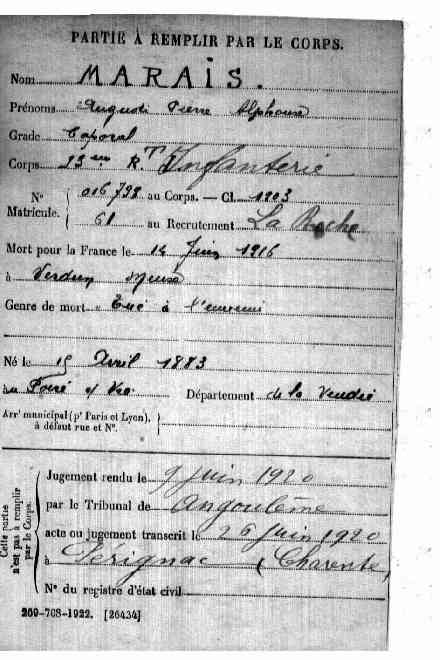 PARTIE À REMPLIR PAR LE CORPS.
Nom MARAIS.
Prénoms Auguste Pierre Alphonse
Grade Caporal
Corps R.T Infanterie
N° Matricule. 016798 au Corps. — Cl. 1903
61 au Recrutement La Roche
Mort pour la France le 14 Juin 1916
à Verdun Meuse
Genre de mort Tué à l'ennemi
Né le 15 Avril 1883
au Poiré s/ Vie Département de la Vendée
Arrt municipal (pr Paris et Lyon), à défaut rue et N°.
Cette partie n'est pas à remplir par le Corps.
Jugement rendu le 9 juin 1920
par le Tribunal de Angoulême
acte ou jugement transcrit le 26 juin 1920
à Pérignac (Charente)
N° du registre d'état civil
269-708-1922. [26434]